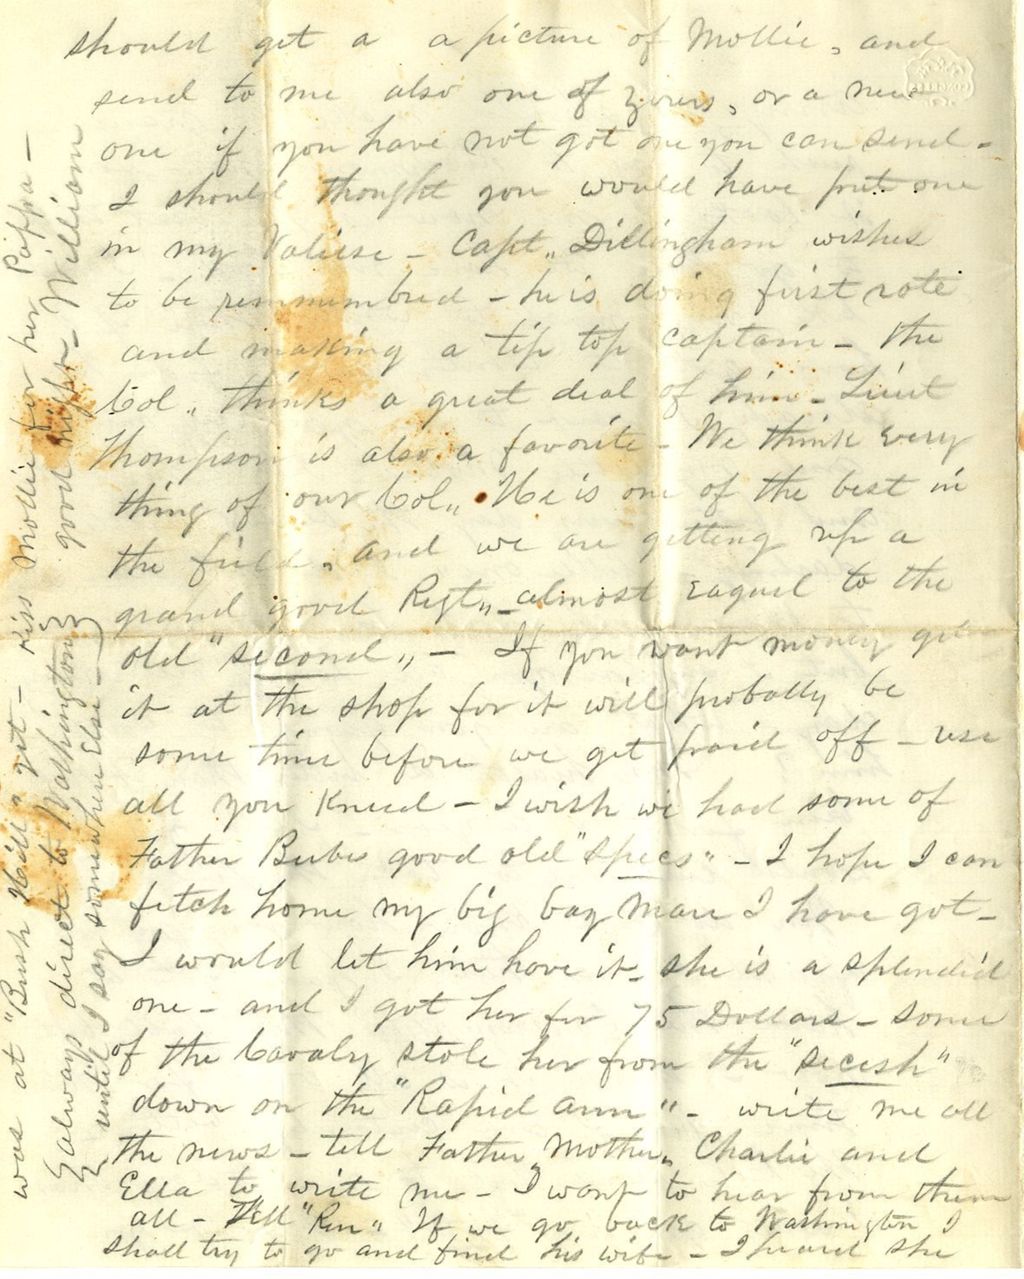 should get a a picture of Mollie, and
send to me also one of yours, or a new
one if you have not got one you can send -
I should thought you would have put one
in my Valiese - Capt,, Dillingham wishes
to be remmumbred - he is doing first rate
and making a tip top captain - the
Col,, thinks a great deal of him - Lieut
Thompson is also a favorite - We think every
thing of our Col,, He is one of the best in
the field, and we are getting up a
grand good Regt,, - almost eaquel to the
old "second,, - If you want money get
it at the shop for it will probally be
some time before we get paid off - use
all you Kneed - I wish we had some of
Father Bubes good old "specs" - I hope I can
fetch home my big bay Mare I have got -
I would let him have it - she is a splendid
one - and I got her for 75 Dollars - some
of the Cavaly stole her from the "secesh"
down on the "Rapid ann" - write me all
the news - tell Father, Mother, Charlie and
Ella to write me - I want to hear from them
all - Tell "Ren" If we go back to Washington I
shall try to go and find his wife - I heard she
was at "Bush Hill" yet - Kiss Mollie for her Pappa -
good night - William
always direct to Washington
until I say somewhere Else -